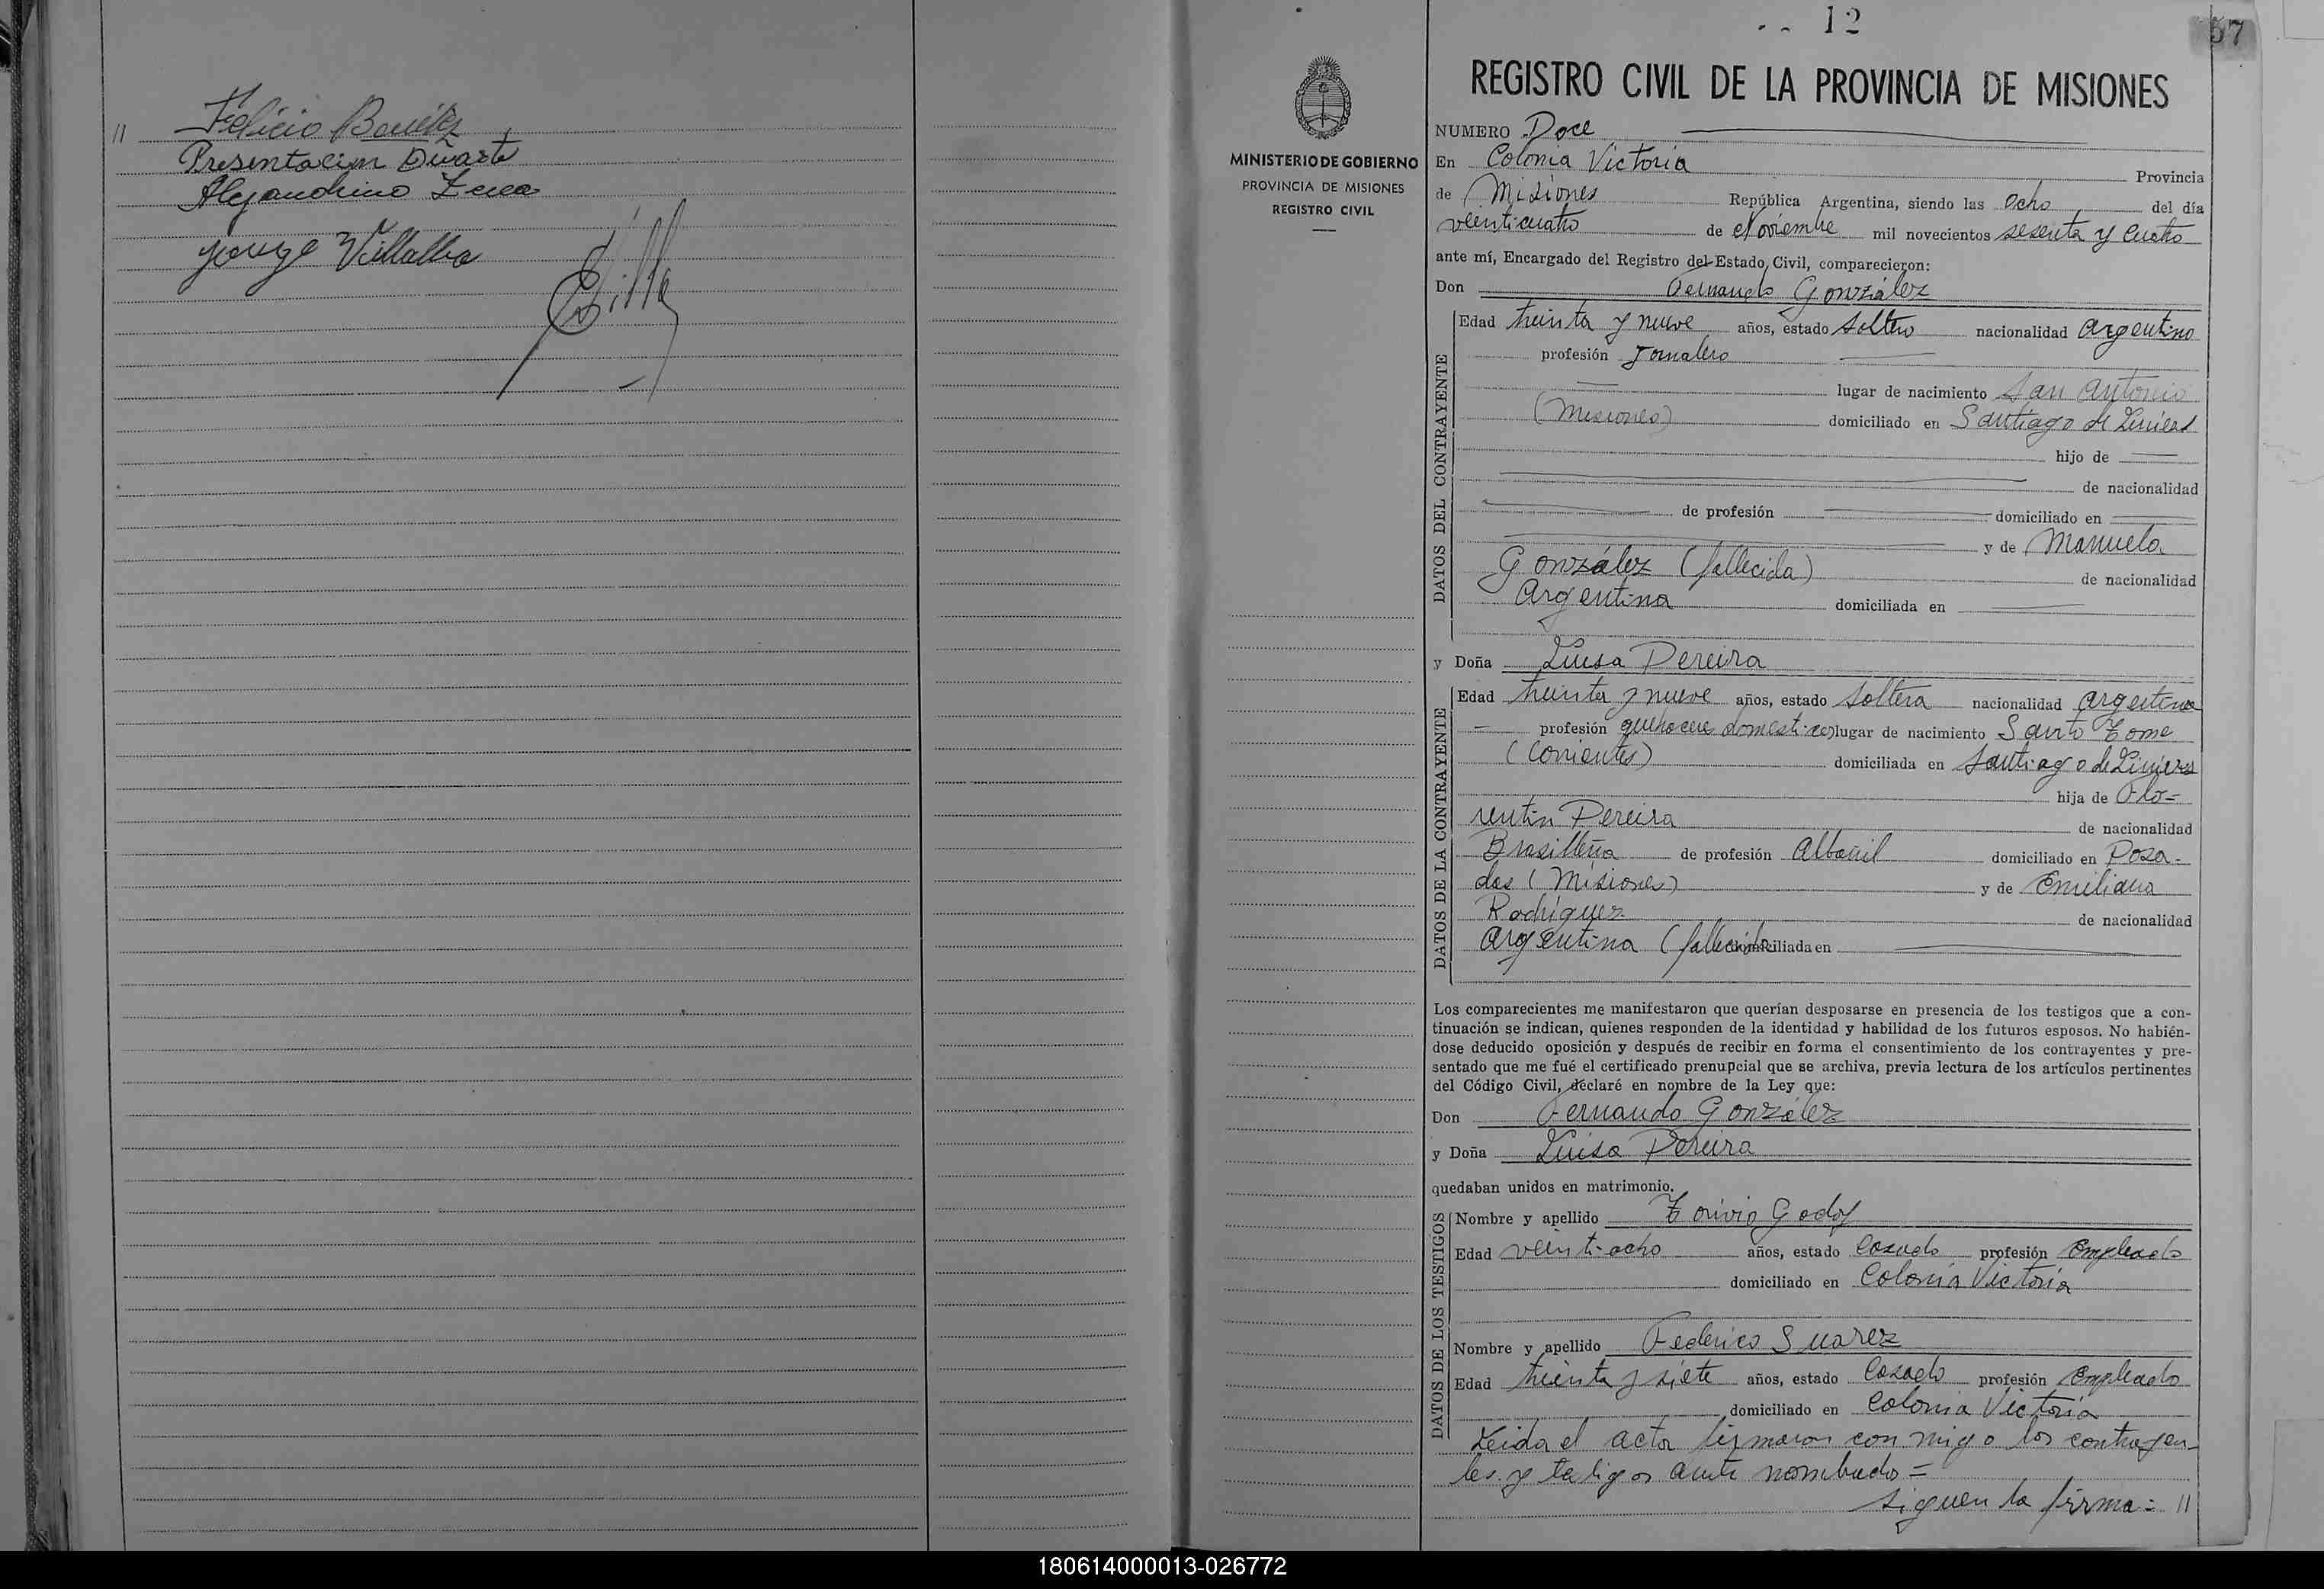 // Felicio Benítez
Presentacion Duarte
Alejandrino
Jorge Villalba
12
57
REGISTRO CIVIL DE LA PROVINCIA DE MISIONES
MINISTERIO DE GOBIERNO
PROVINCIA DE MISIONES
REGISTRO CIVIL
NUMERO Doce
En Colonia Victoria Provincia
de Misiones República Argentina, siendo las Ocho del día
veinticuatro de Noviembre mil novecientos sesenta y cuatro
ante mí, Encargado del Registro del Estado Civil, comparecieron:
Don Fernando González
DATOS DEL CONTRAYENTE
Edad treinta y nueve años, estado soltero nacionalidad argentino
profesión Jornalero
lugar de nacimiento San Antonio
(Misiones) domiciliado en Santiago de Liniers
hijo de
de nacionalidad
de profesión domiciliado en
y de Manuela
González (fallecida) de nacionalidad
Argentina domiciliada en
y Doña Luisa Pereira
DATOS DE LA CONTRAYENTE
Edad treinta y nueve años, estado soltera nacionalidad argentina
profesión quehacere domestico lugar de nacimiento Santo Tome
(Corrientes) domiciliada en Santiago de Liniers
hija de Flo=
rentin Pereira de nacionalidad
Brasilleña de profesión Albañil domiciliado en Posa-
das (Misiones) y de Emiliana
Rodríguez de nacionalidad
Argentina (fallecida domiciliada en
Los comparecientes me manifestaron que querían desposarse en presencia de los testigos que a con-
tinuación se indican, quienes responden de la identidad y habilidad de los futuros esposos. No habién-
dose deducido oposición y después de recibir en forma el consentimiento de los contrayentes y pre-
sentado que me fué el certificado prenupcial que se archiva, previa lectura de los artículos pertinentes
del Código Civil, declaré en nombre de la Ley que:
Don Fernando González
y Doña Luisa Pereira
quedaban unidos en matrimonio.
DATOS DE LOS TESTIGOS
Nombre y apellido Torivio Godoy
Edad veintiocho años, estado Casado profesión Empleado
domiciliado en Colonia Victoria
Nombre y apellido Federico Suarez
Edad treinta y siete años, estado Casado profesión Empleado
domiciliado en Colonia Victoria
Leida el acta firmaron con migo los contrayen-
tes y testigos ante nombrado =
siguen la firma = //
180614000013-026772